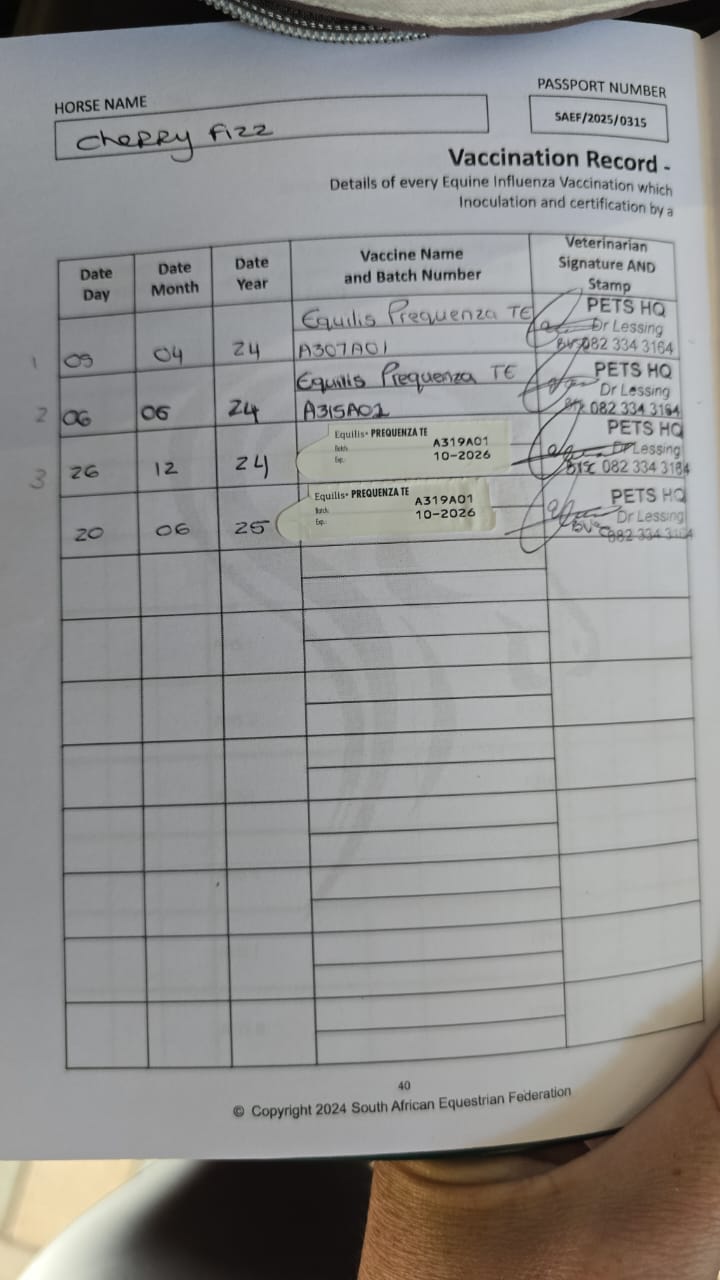 HORSE NAME
Cherry Fizz
PASSPORT NUMBER
SAEF/2025/0315
Vaccination Record -
Details of every Equine Influenza Vaccination which
Inoculation and certification by a
Date Day
Date Month
Date Year
Vaccine Name and Batch Number
Veterinarian Signature AND Stamp
1 05 04 24 Equilis Prequenza TE
A307A01
PETS HQ
Dr Lessing
BVSc 082 334 3164
2 06 06 24 Equilis Prequenza TE
A315A02
PETS HQ
Dr Lessing
082 334 3164
3 26 12 24 Equilis• PREQUENZA TE
Batch: A319A01
Exp.: 10-2026
PETS HQ
Dr Lessing
BVSC 082 334 3164
20 06 25 Equilis• PREQUENZA TE
Batch: A319A01
Exp.: 10-2026
PETS HQ
Dr Lessing
BVSc 082 334
40
© Copyright 2024 South African Equestrian Federation